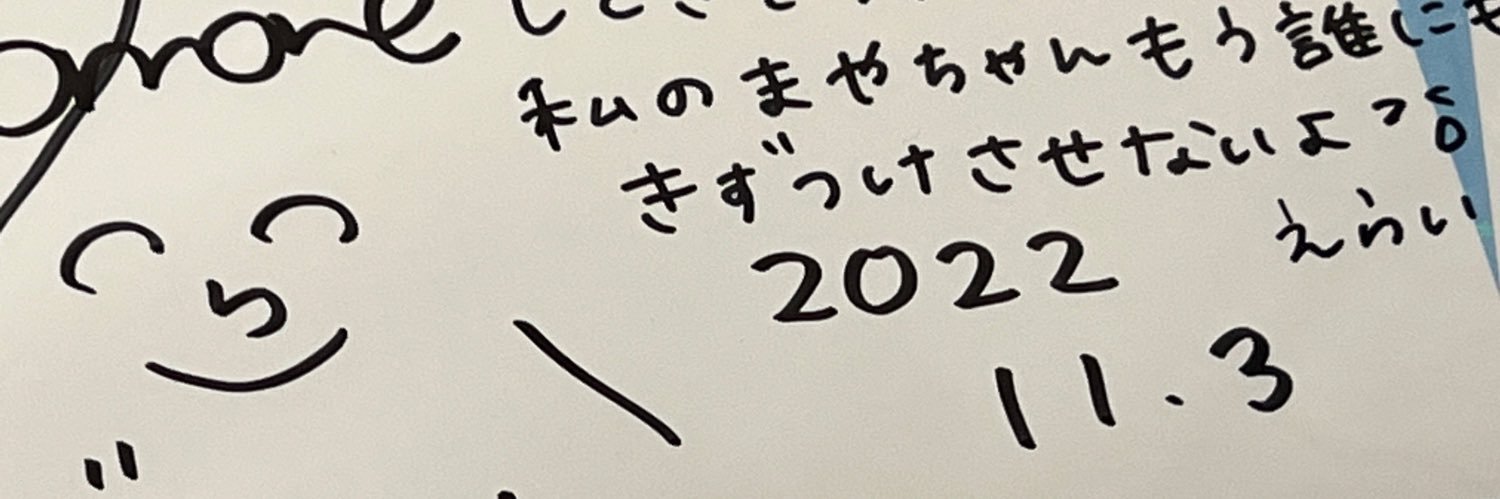 私のまやちゃんもう誰にも
きずつけさせないよ
えらい
2022
11.3